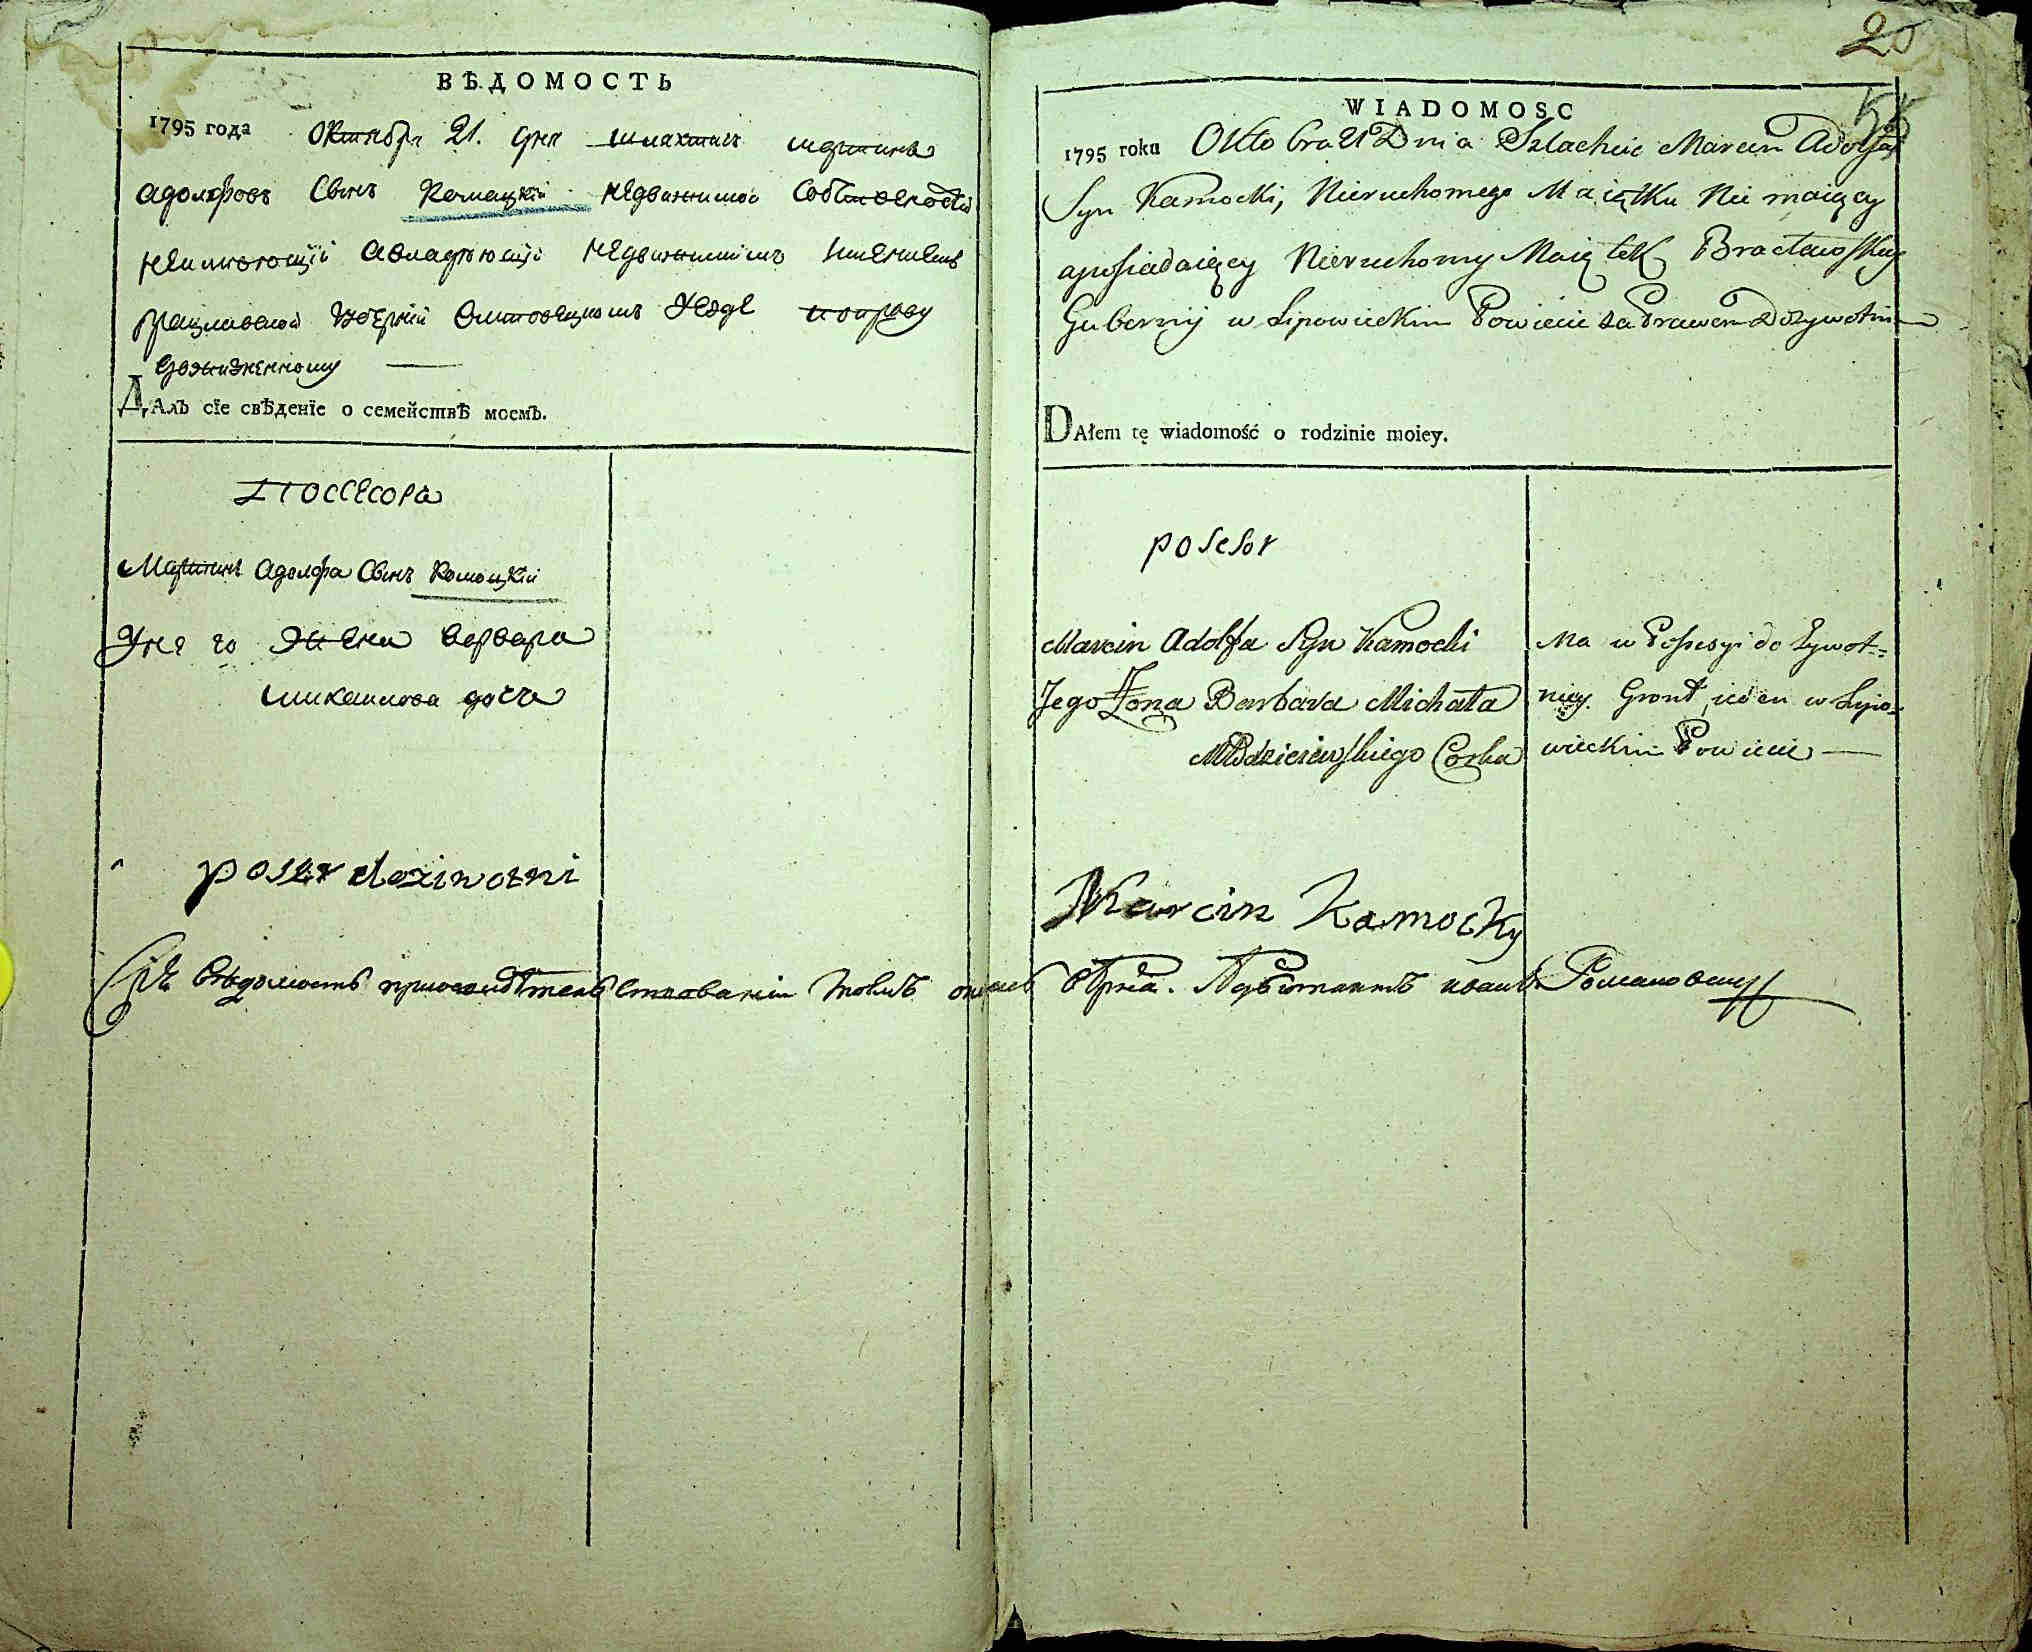 ВѢДОМОСТЬ
1795 года Октября 21. дня шляхтичъ мартинъ
адолфовъ Сынъ Комацкій недвижимой собствености
неимеющій авладеющій недвижимимъ имениемъ
Брацлавской Губерніи влиповецкомъ уезде поправу
доживненному
ДАлъ сїе свѢденїе о семействѢ моемъ.
Поссесора
Мартинъ адолфа Сынъ Комоцкій
У не го жена варвара
михаилова дочь
poser doziwotni
Сія вѣдомость
20
55
WIADOMOSC
1795 roku Oktobra 21 Dnia Szlachcic Marcin Adolfa
Syn Kamocki, Nieruchomego Maiątku Nie maiący
aposiadaięcy Nieruchomy Maiątek Bracławskiey
Gubernij w Lipowieckim Powiecie za Prawem Dożywotnim
DAłem tę wiadomość o rodzinie moiey.
posesor
Marcin Adolfa Syn Kamocki
Jego Żona Barbara Michała
Młodzieiewskiego Corka
Ma w Possesyi do Żywot-
niey Gront ieden w Lipo-
wieckim Powiecie
Marcin Kamocky
Адъютантъ иванъ Романовскій